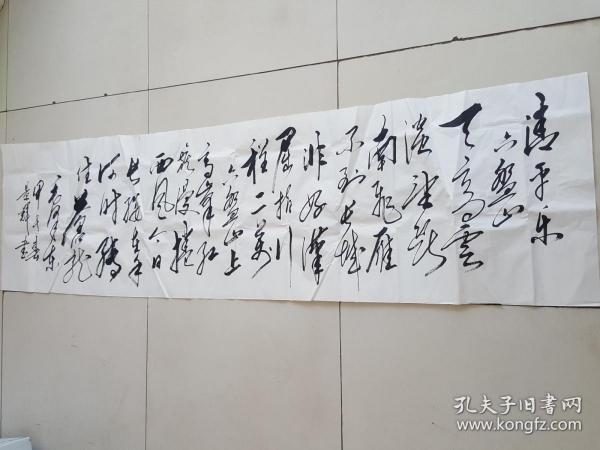 清平乐
六盘山
天高云
淡望断
南飞雁
不到长城
非好汉
屈指行
程二万
六盘山上
高峰红
旗漫捲
西风今日
长缨在手
何时缚
住苍龙
毛泽东
甲
孔夫子旧书网
www.kongfz.com